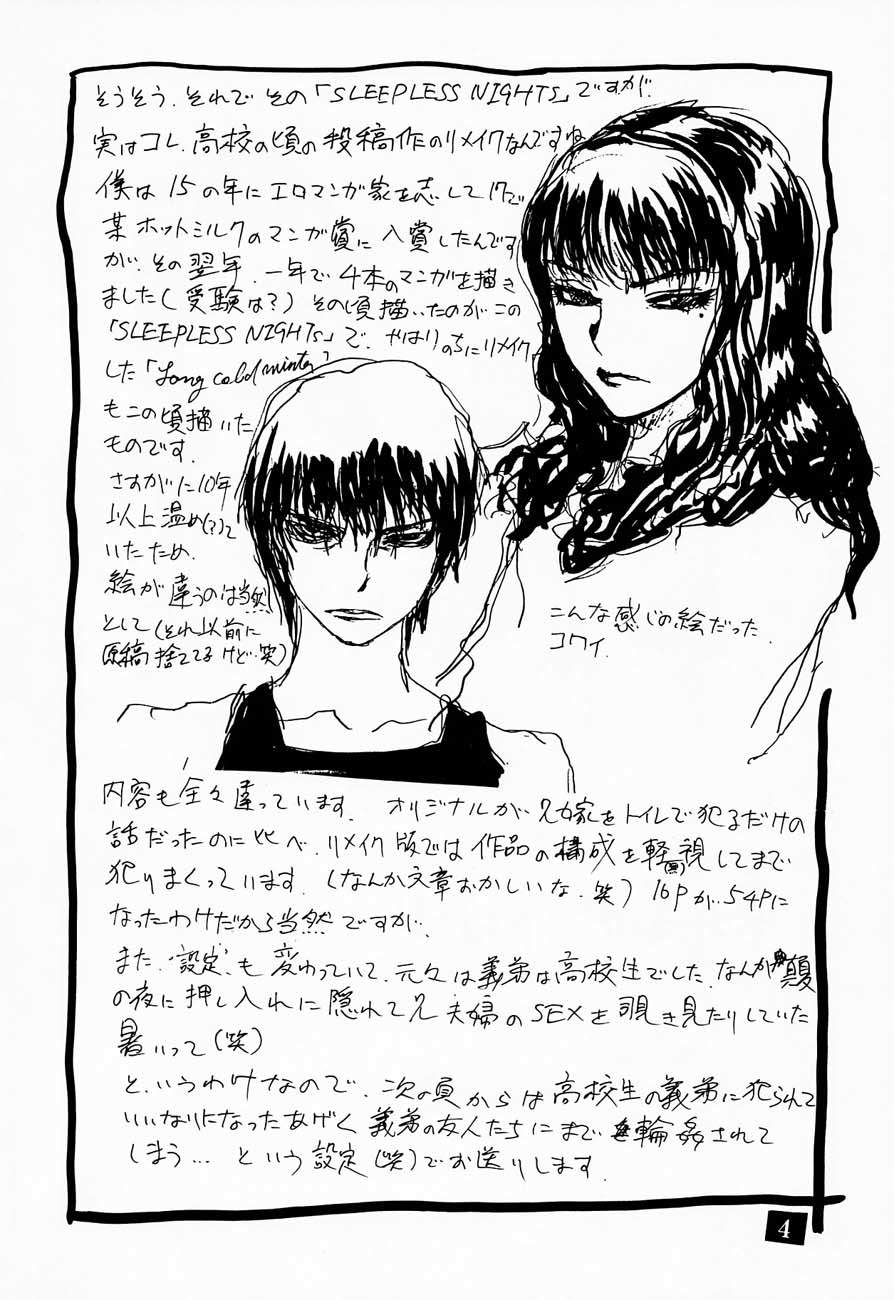 そうそう、それで その「SLEEPLESS NIGHTS」ですが、
実はコレ、高校の頃の投稿作のリメイクなんですね
僕は 15の年に エロマンガ家を志して 17で
某ホットミルクのマンガ賞に 入賞したんです
が、その翌年、一年で 4本のマンガを描き
ました(受験は?) その頃描いたのが この
「SLEEPLESS NIGHTS」で、やはり のちにリメイク
した「Long cold winter」
もこの頃描いた
ものです。
さすがに10年
以上温め(?)て
いたため、
絵が違うのは当然
として(それ以前に
原稿捨ててるけど・笑)
こんな感じの絵だった。
コワイ。
内容も全々違っています。 オリジナルが 兄嫁をトイレで犯るだけの
話だったのに比べ、リメイク版では 作品の構成を軽視してまで
犯りまくっています。 (なんか文章おかしいな・笑) 16Pが 54Pに
なったわけだから当然ですが、
また、設定も 変わっていて、元々は義弟は高校生でした、なんか真夏
の夜に押し入れに隠れて兄夫婦のSEXを覗き見たりしていた
暑いって(笑)
と、いうわけなので、次の頁からは高校生の義弟に犯られて
いいなりになったあげく 義弟の友人たちにまで 輪姦されて
しまう… という設定(笑)でお送りします。
4